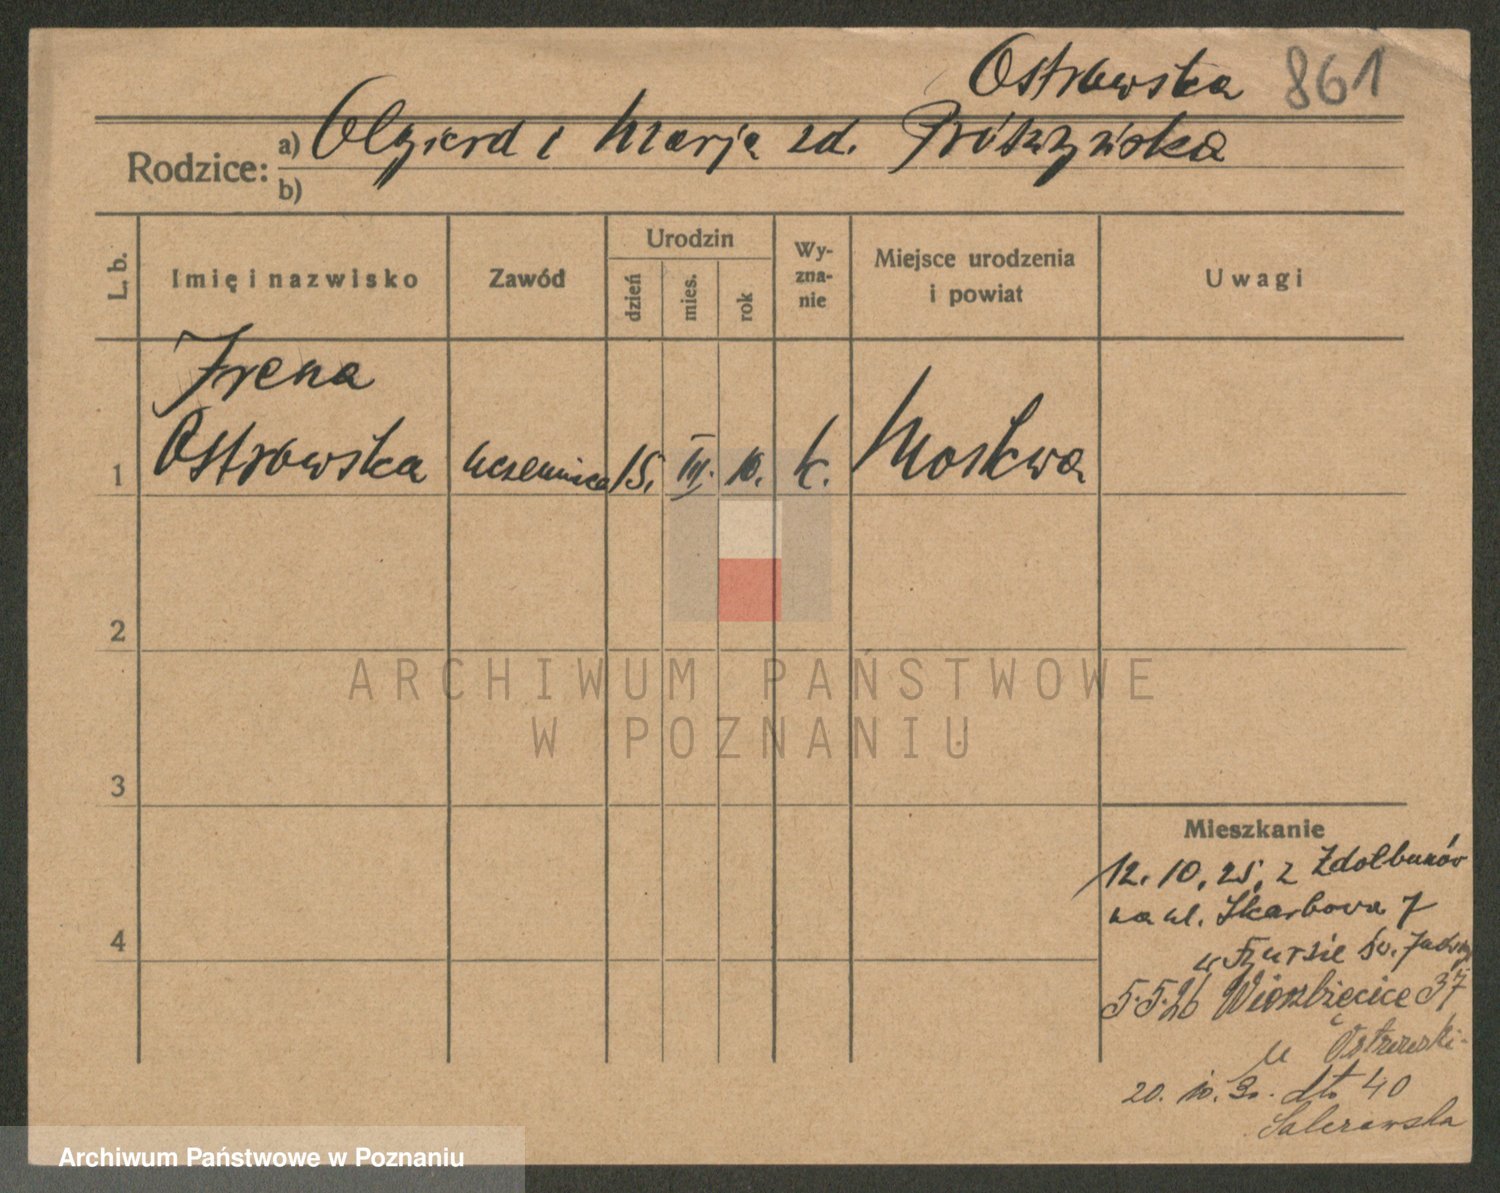 Ostrowska 861
Rodzice: a) Olgierd i Marja zd. Prószyńska
b)
L. b. Imię i nazwisko Zawód Urodzin dzień mies. rok Wy-zna-nie Miejsce urodzenia i powiat Uwagi
Irena
1 Ostrowska uczennica 15. III. 10. k. Moskwa
2
ARCHIWUM PAŃSTWOWE
W POZNANIU
3
Mieszkanie
12.10.25. z Zdołbunów
na ul. Skarbowa 7
św. Jadw
4
5.5.26 Wierzbięcice 37
u Ostrowski
20. 10. 30. dto 40
Archiwum Państwowe w Poznaniu